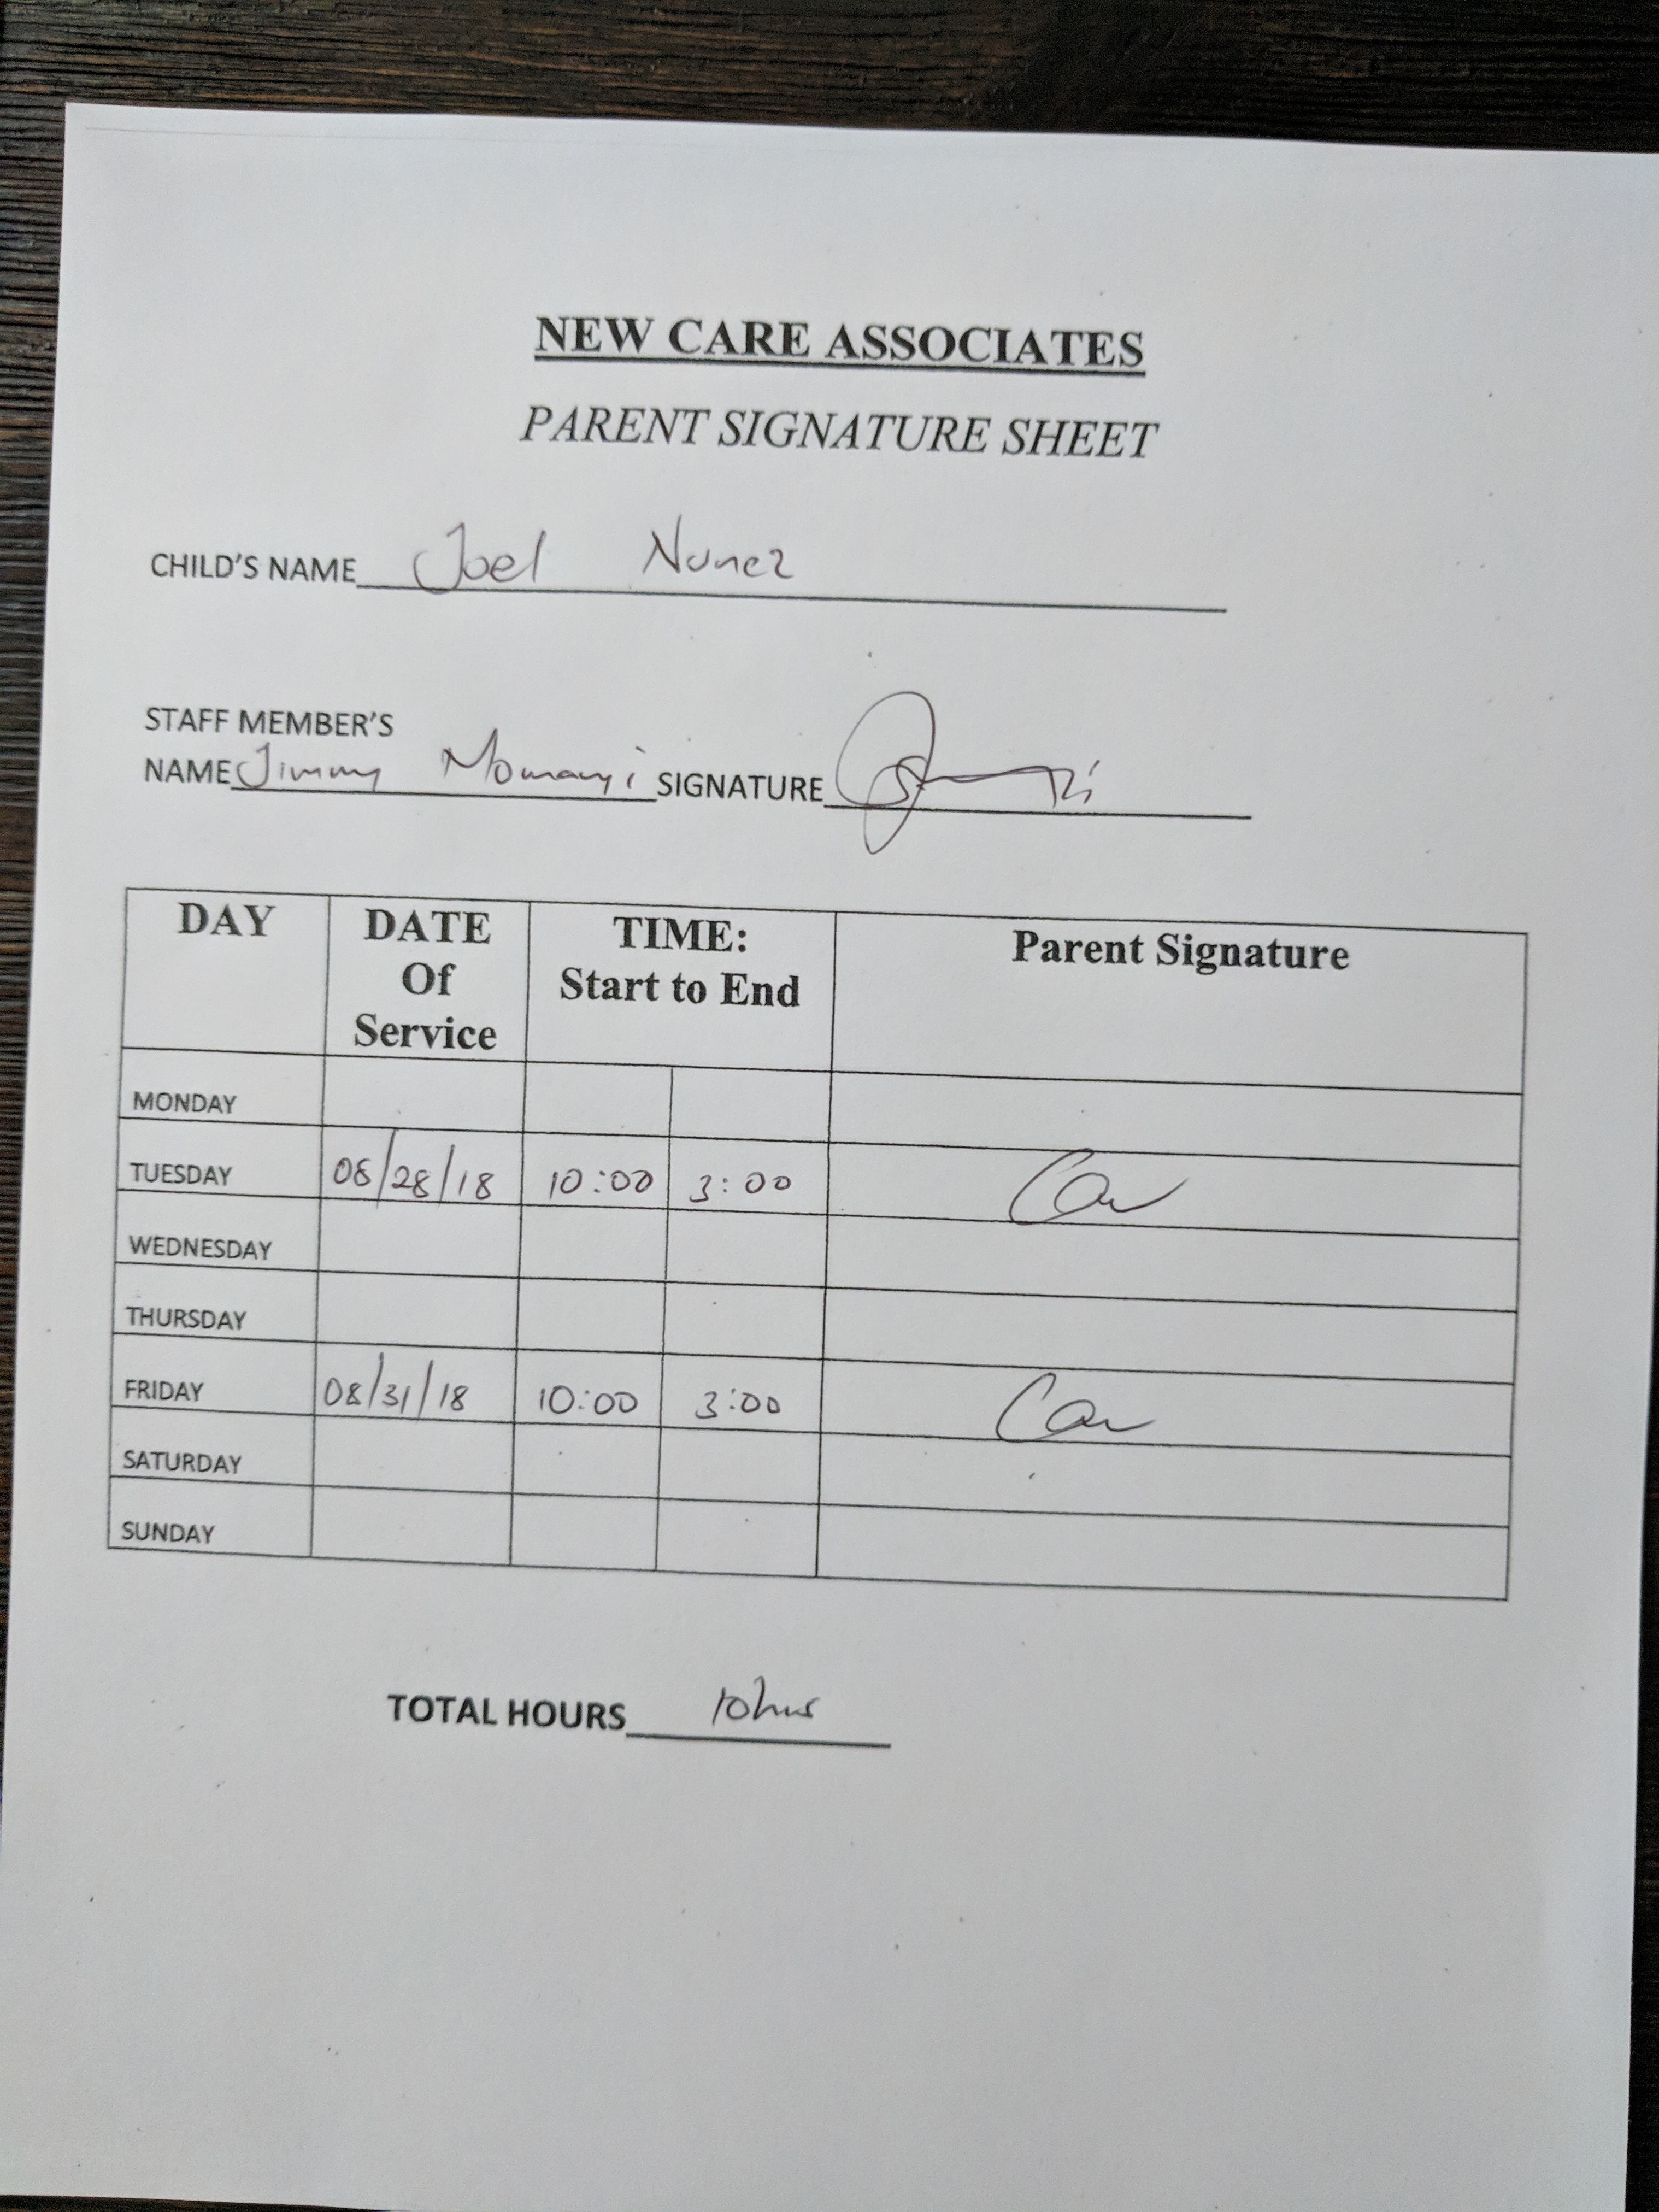 NEW CARE ASSOCIATES
PARENT SIGNATURE SHEET
CHILD'S NAME Joel Nunez
STAFF MEMBER'S
NAME Jimmy Momanyi SIGNATURE
DAY DATE Of Service TIME: Start to End Parent Signature
MONDAY
TUESDAY 08/28/18 10:00 3:00
WEDNESDAY
THURSDAY
FRIDAY 08/31/18 10:00 3:00
SATURDAY
SUNDAY
TOTAL HOURS 10hrs